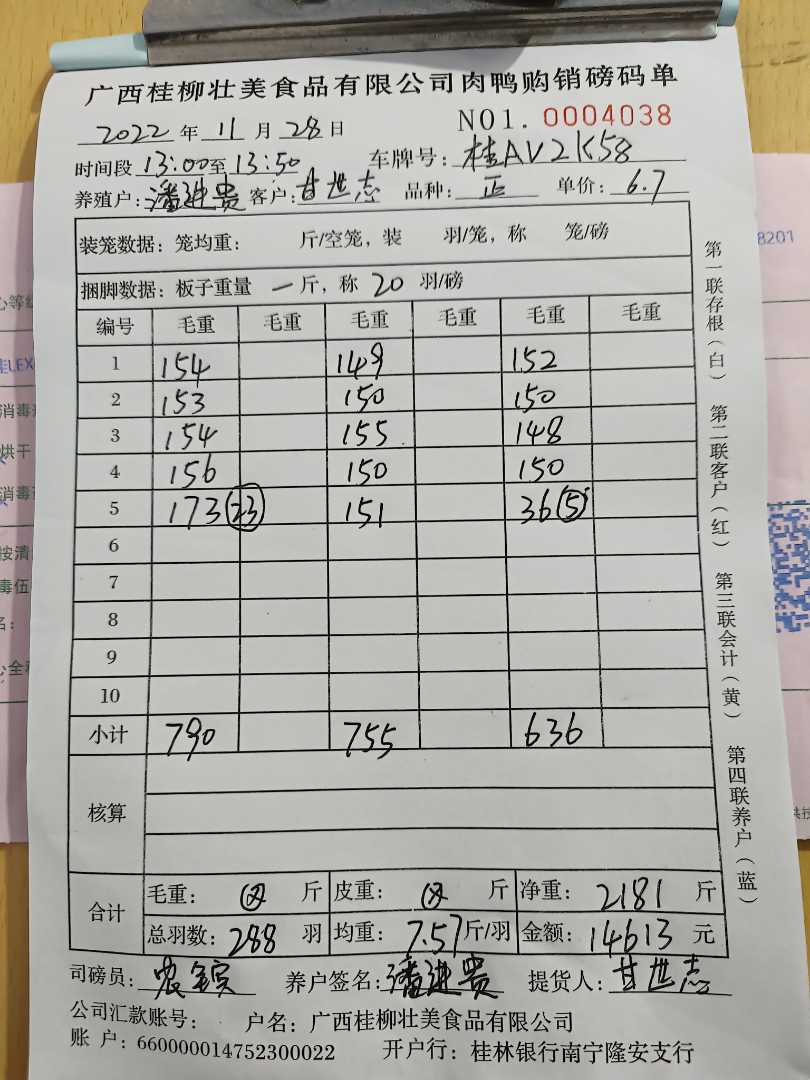 广西桂柳壮美食品有限公司肉鸭购销磅码单
2022 年 11 月 28 日 NO1. 0004038
时间段 13:00至 13:50 车牌号: 桂AV2K58
养殖户: 潘进贵 客户: 甘世志 品种: 正 单价: 6.7
装笼数据: 笼均重: 斤/空笼, 装 羽/笼, 称 笼/磅
捆脚数据: 板子重量 一 斤, 称 20 羽/磅
编号 毛重 毛重 毛重 毛重 毛重 毛重
1 154 149 152
2 153 150 150
3 154 155 148
4 156 150 150
5 173 (23) 151 36 (5)
6
7
8
9
10
小计 790 755 636
核算
合计
毛重: 斤 皮重: 斤 净重: 2181 斤
总羽数: 288 羽 均重: 7.57 斤/羽 金额: 14613 元
司磅员: 养户签名: 潘进贵 提货人: 甘世志
公司汇款账号: 户名: 广西桂柳壮美食品有限公司
账 户: 660000014752300022 开户行: 桂林银行南宁隆安支行
第一联存根(白) 第二联客户(红) 第三联会计(黄) 第四联养户(蓝)
8201
心等级
LEX
消毒
烘干
消毒
按清
毒伍
名:
心全